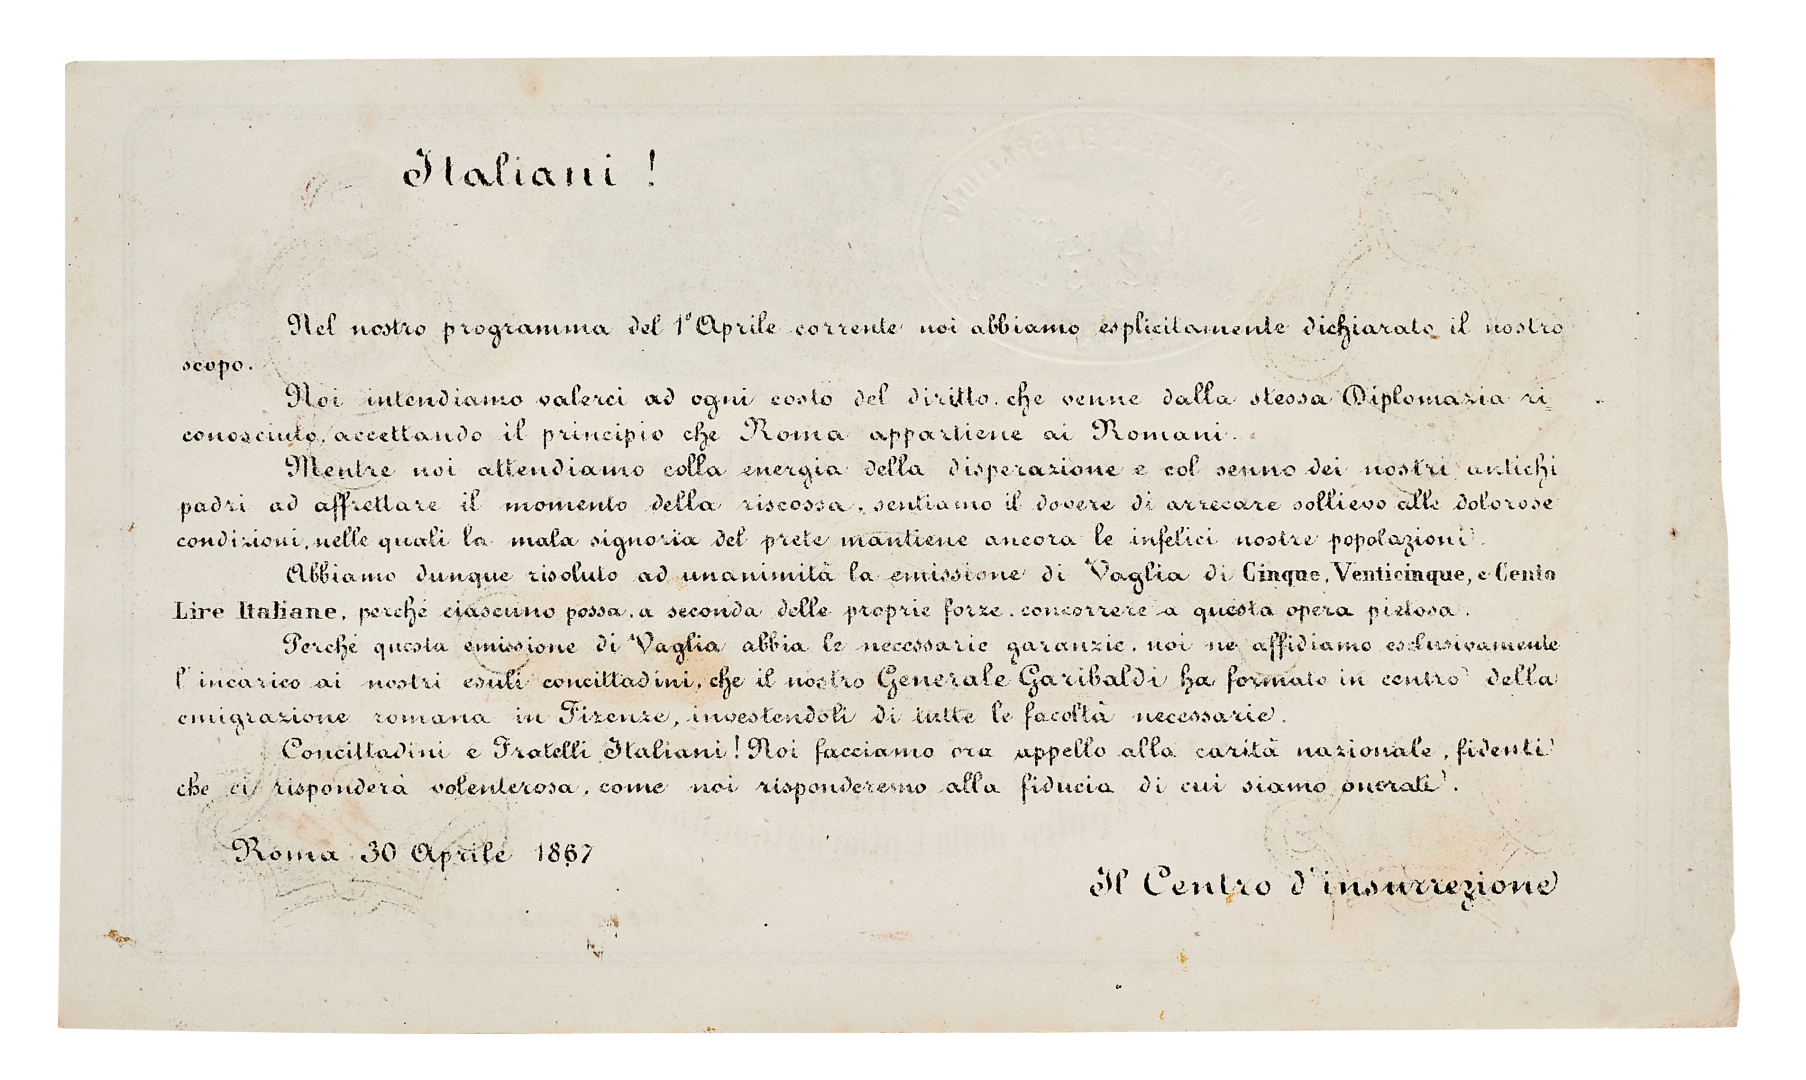 Italiani !
Nel nostro programma del 1° Aprile corrente noi abbiamo esplicitamente dichiarato il nostro
scopo.
Noi intendiamo valerci ad ogni costo del diritto, che venne dalla stessa Diplomazia ri
conosciuto, accettando il principio che Roma appartiene ai Romani.
Mentre noi attendiamo colla energia della disperazione e col senno dei nostri antichi
padri ad affrettare il momento della riscossa, sentiamo il dovere di arrecare sollievo alle dolorose
condizioni, nelle quali la mala signoria del prete mantiene ancora le infelici nostre popolazioni.
Abbiamo dunque risoluto ad unanimità la emissione di Vaglia di Cinque, Venticinque, e Cento
Lire Italiane, perché ciascuno possa, a seconda delle proprie forze, concorrere a questa opera pietosa.
Perché questa emissione di Vaglia abbia le necessarie garanzie, noi ne affidiamo esclusivamente
l'incarico ai nostri esuli concittadini, che il nostro Generale Garibaldi ha formato in centro della
emigrazione romana in Firenze, investendoli di tutte le facoltà necessarie.
Concittadini e Fratelli Italiani! Noi facciamo ora appello alla carità nazionale, fidenti
che ci risponderà volenterosa, come noi risponderemo alla fiducia di cui siamo onorati.
Roma 30 Aprile 1867
Il Centro d'insurrezione